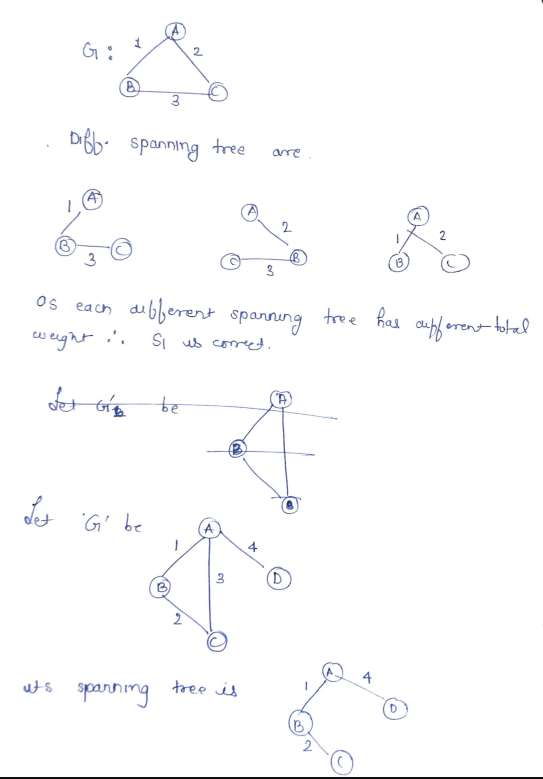 G:
A
1
2
B
C
3
. Diff. spanning tree are.
A
1
B
C
3
A
2
C
B
3
A
1
2
B
C
Os each different spanning tree has different total
weight ∴ S1 is correct.
Let G' be
A
B
Let 'G' be
A
1
4
B
3
D
2
C
its spanning tree is
A
4
1
D
B
2
C